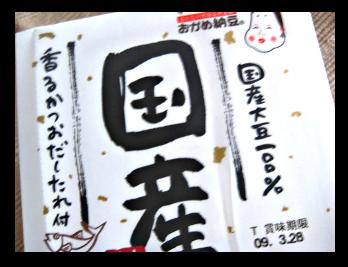 おかめ納豆®
国産大豆一〇〇%
国産
香るかつおだしたれ付
T 賞味期限
09. 3.28